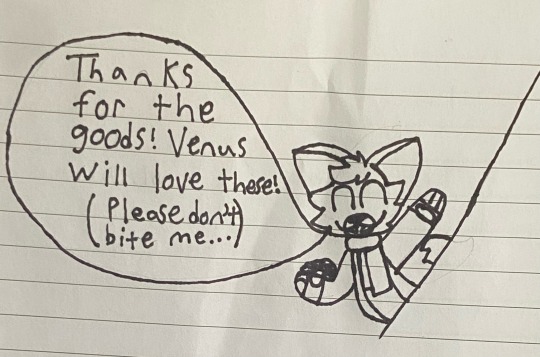 Thanks
for the
goods! Venus
will love these!
(Please don't
bite me...)